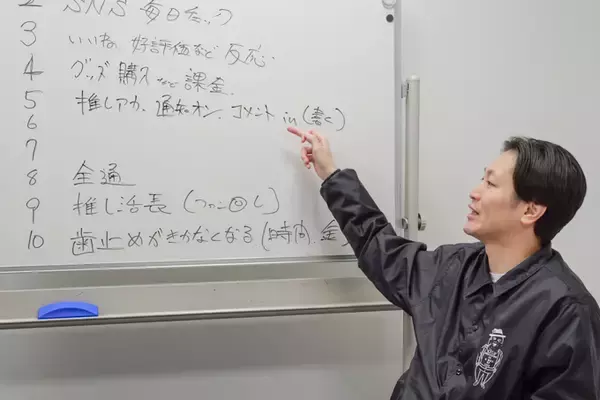 2 SNS 毎日チェック
3 いいね、好評価など 反応.
4 グッズ 購入など 課金.
5 推しアカ、通知オン、コメント in (書く)
6
7
8 全通
9 推し活長 (ファン回し)
10 歯止めがきかなくなる (時間、金)